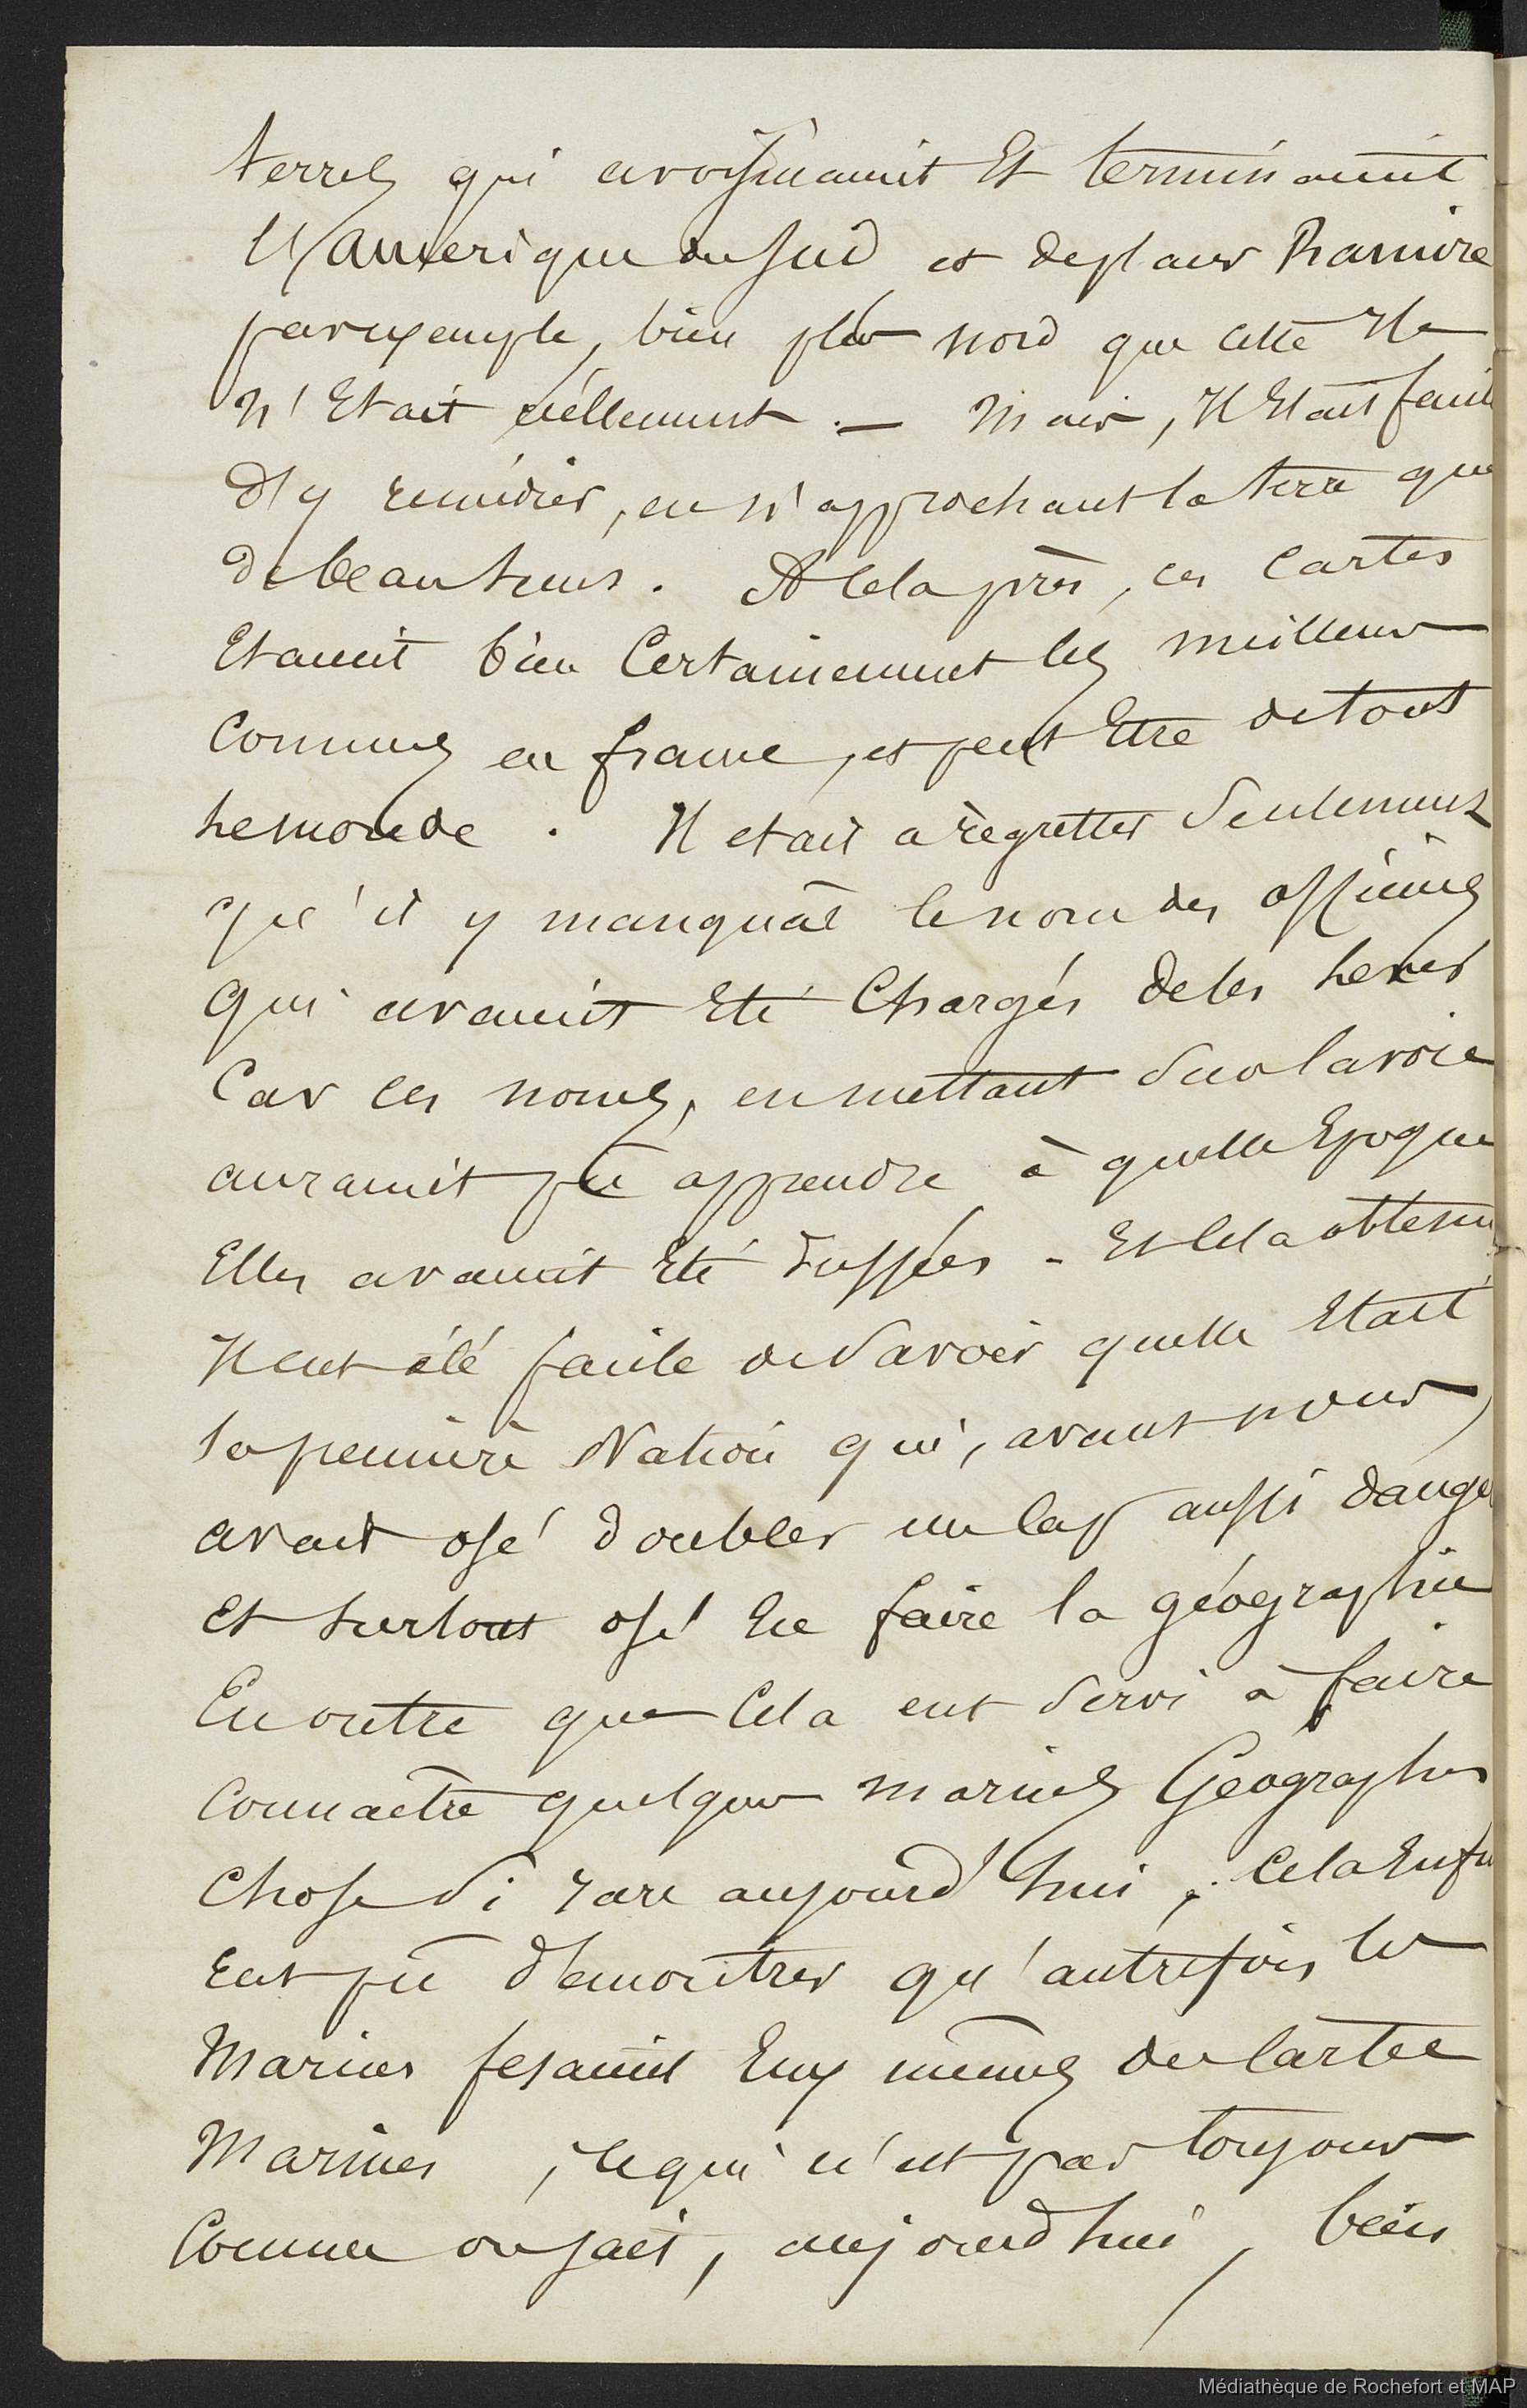 terres qui avoisinaient Et terminaient
L'amerique du Sud et de placer Ramire
par exemple, bien plus nord que cette Ile
n'Etait réellement. — Mais, Il Etait facile
d'y remédier, en n'approchant la terre que
de beau tems. A cela près, ces Cartes
Etaient bien Certainement les meilleures
Connues en france, et peut Etre de tout
le monde. Il etait a règretter Seulement
qu'il y manquât le nom des officiers
qui avaient Eté Chargés de les lever
Car ces noms, en mettant Sur la voie
auraient pû apprendre à quelle Epoque
Elles avaient Eté dressées - Et cela obtenu,
Il eut été facile de Savoir quelle Etait
la premiere Nation qui, avant nous,
avait osé doubler un Cap aussi dange
Et surtout osé En faire la géographie
En outre que Cela eut Servi à faire
Connaetre quelques marins Géographes
Chose Si rare aujourd'hui, Cela Enfin
Eut pû démontrer qu'autrefois les
Marins fesaient Eux mêmes des Cartes
Marines, Ce qui n'est pas toujours
Comme on sait, aujourd hui, bien
Médiathèque de Rochefort et MAP